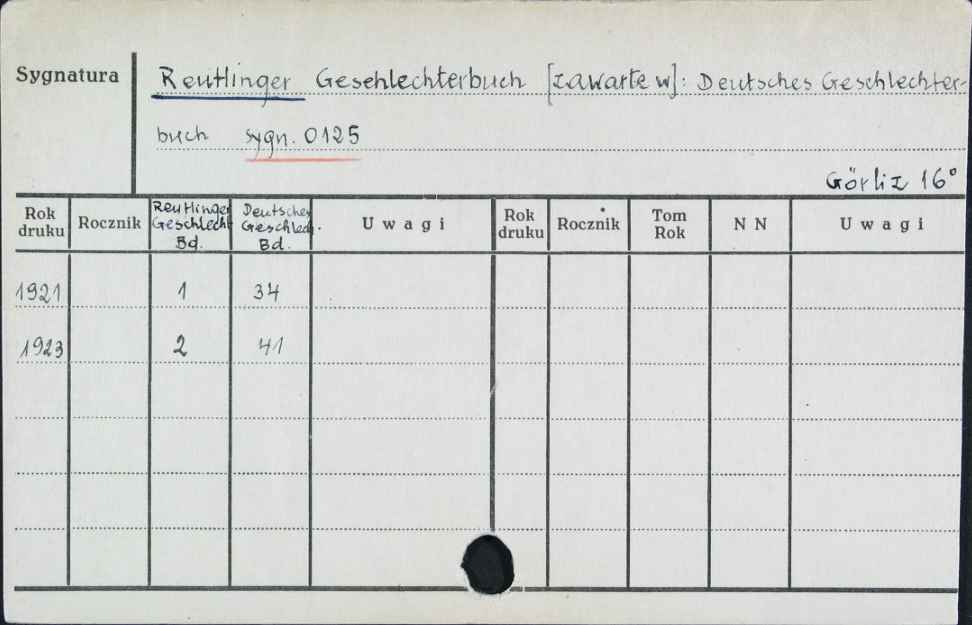 Sygnatura
Reutlinger Geschlechterbuch [zawarte w]: Deutsches Geschlechter-
buch sygn. 0125
Görliz 16°
Rok druku Rocznik Reutlinger Geschlecht Bd. Deutsches Geschlech. Bd. Uwagi Rok druku Rocznik Tom Rok NN Uwagi
1921 1 34
1923 2 41